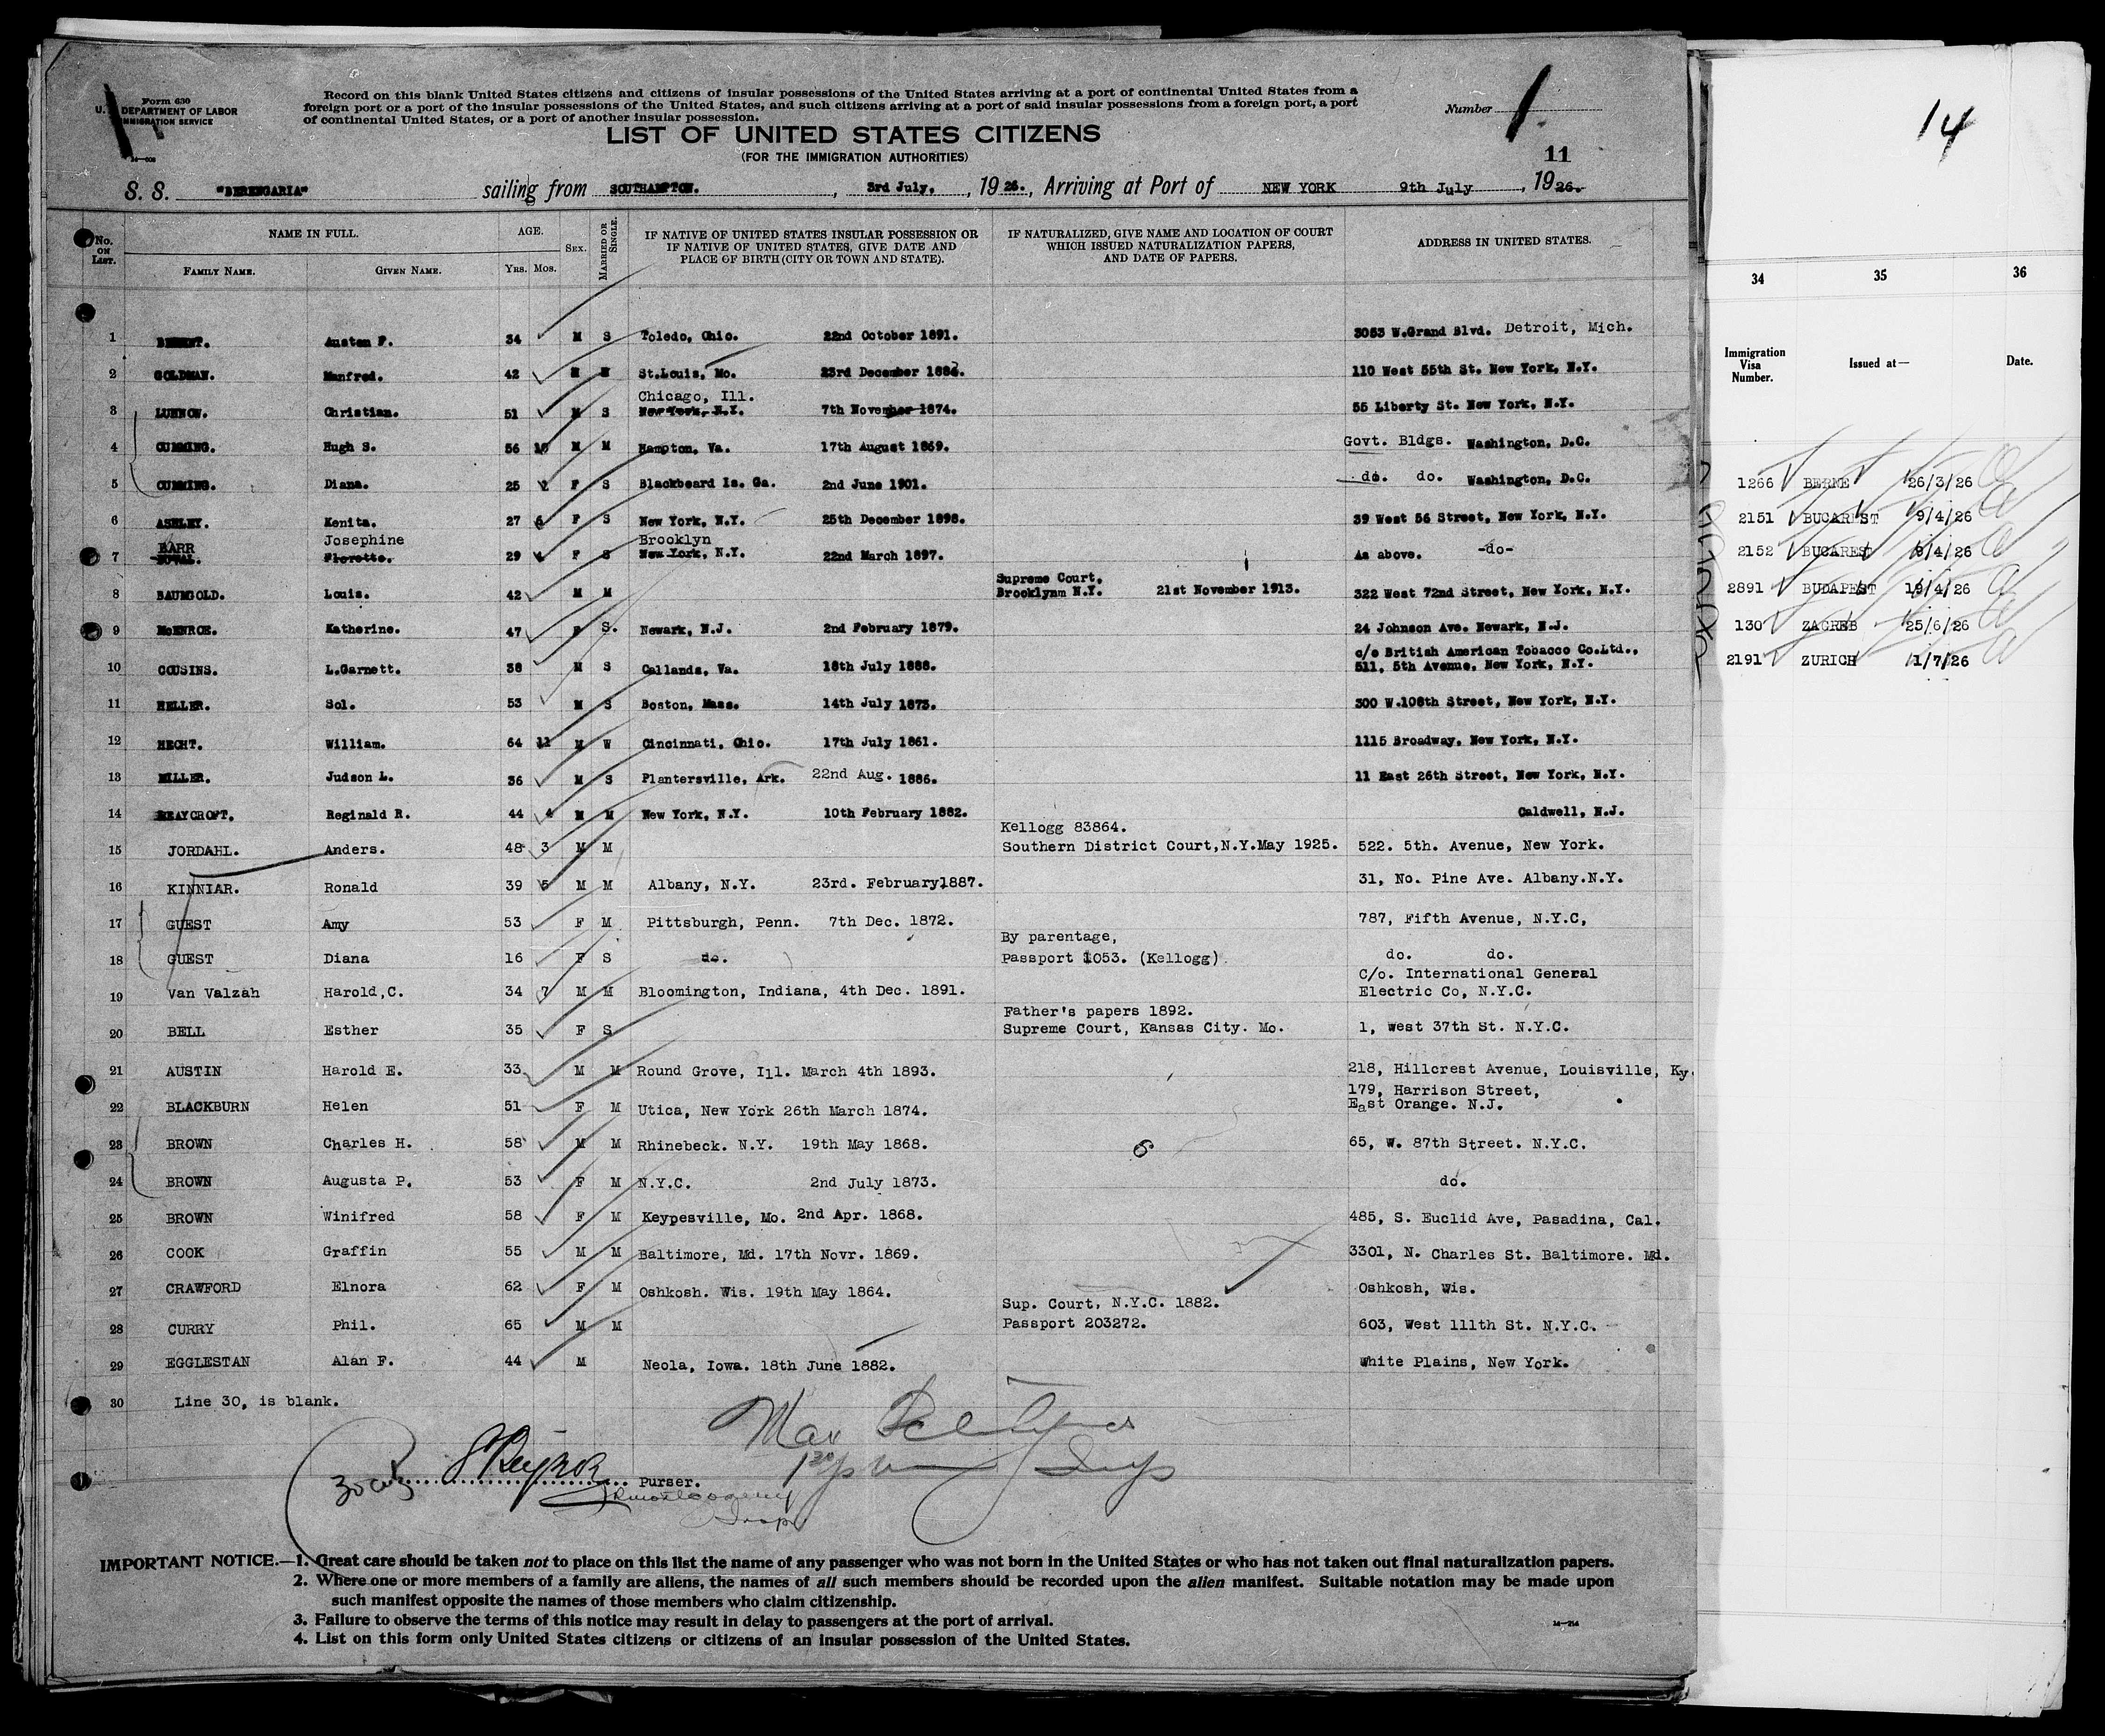 Form 630
U. S. DEPARTMENT OF LABOR
IMMIGRATION SERVICE
Record on this blank United States citizens and citizens of insular possessions of the United States arriving at a port of continental United States from a
foreign port or a port of the insular possessions of the United States, and such citizens arriving at a port of said insular possessions from a foreign port, a port
of continental United States, or a port of another insular possession.
Number 1
LIST OF UNITED STATES CITIZENS
(FOR THE IMMIGRATION AUTHORITIES)
11
S. S. "BERENGARIA" sailing from SOUTHAMPTON. , 3rd July. , 1926. , Arriving at Port of NEW YORK 9th July , 1926.
No. ON LIST. NAME IN FULL. FAMILY NAME. GIVEN NAME. AGE. YRS. MOS. SEX. MARRIED OR SINGLE. IF NATIVE OF UNITED STATES INSULAR POSSESSION OR IF NATIVE OF UNITED STATES, GIVE DATE AND PLACE OF BIRTH (CITY OR TOWN AND STATE). IF NATURALIZED, GIVE NAME AND LOCATION OF COURT WHICH ISSUED NATURALIZATION PAPERS, AND DATE OF PAPERS. ADDRESS IN UNITED STATES.
1 Austen F. 34 M S Toledo, Ohio. 22nd October 1891. 3053 W.Grand Blvd. Detroit, Mich.
2 GOLDMAN. Manfred. 42 M M St.Louis, Mo. 23rd December 1883. 110 West 55th St. New York, N.Y.
Chicago, Ill.
3 LUHNOW. Christian. 51 M S New York, N.Y. 7th November 1874. 55 Liberty St. New York, N.Y.
4 CUMMING. Hugh S. 56 10 M M Hampton, Va. 17th August 1869. Govt. Bldgs. Washington, D.C.
5 CUMMING. Diana. 25 1 F S Blackbeard Is. Ga. 2nd June 1901. do. do. Washington, D.C.
6 ASHLEY. Kenita. 27 6 F S New York, N.Y. 25th December 1898. 39 West 56 Street, New York, N.Y.
BARR Josephine Brooklyn
7 DUVAL. Florette. 29 4 F S New York, N.Y. 22nd March 1897. As above. -do-
Supreme Court.
8 BAUMGOLD. Louis. 42 M M Brooklynm N.Y. 21st November 1913. 322 West 72nd Street, New York, N.Y.
9 McENROE. Katherine. 47 F S. Newark, N.J. 2nd February 1879. 24 Johnson Ave. Newark, N.J.
c/o British American Tobacco Co.Ltd.,
10 COUSINS. L.Garnett. 38 M S Callands, Va. 18th July 1888. 511, 5th Avenue, New York, N.Y.
11 HELLER. Sol. 53 M S Boston, Mass. 14th July 1873. 300 W.108th Street, New York, N.Y.
12 HECHT. William. 64 11 M W Cincinnati, Ohio. 17th July 1861. 1115 Broadway, New York, N.Y.
13 MILLER. Judson L. 36 M S Plantersville, Ark. 22nd Aug. 1886. 11 East 26th Street, New York, N.Y.
14 BRAYCROFT. Reginald R. 44 4 M M New York, N.Y. 10th February 1882. Caldwell, N.J.
Kellogg 83864.
15 JORDAHL. Anders. 48 3 M M Southern District Court,N.Y.May 1925. 522. 5th. Avenue, New York.
16 KINNIAR. Ronald 39 5 M M Albany, N.Y. 23rd. February,1887. 31, No. Pine Ave. Albany.N.Y.
17 GUEST Amy 53 F M Pittsburgh, Penn. 7th Dec. 1872. 787, Fifth Avenue, N.Y.C,
By parentage,
18 GUEST Diana 16 F S do. Passport 1053. (Kellogg) do. do.
C/o. International General
19 Van Valzah Harold,C. 34 7 M M Bloomington, Indiana, 4th Dec. 1891. Electric Co, N.Y.C.
Father's papers 1892.
20 BELL Esther 35 F S Supreme Court, Kansas City. Mo. 1, West 37th St. N.Y.C.
21 AUSTIN Harold E. 33 M M Round Grove, Ill. March 4th 1893. 218, Hillcrest Avenue, Louisville, Ky.
179, Harrison Street,
22 BLACKBURN Helen 51 F M Utica, New York 26th March 1874. East Orange. N.J.
23 BROWN Charles H. 58 M M Rhinebeck. N.Y. 19th May 1868. 65, W. 87th Street. N.Y.C.
24 BROWN Augusta P. 53 F M N.Y.C. 2nd July 1873. do.
25 BROWN Winifred 58 F M Keypesville, Mo. 2nd Apr. 1868. 485, S. Euclid Ave, Pasadina, Cal.
26 COOK Graffin 55 M M Baltimore, Md. 17th Novr. 1869. 3301, N. Charles St. Baltimore. Md.
27 CRAWFORD Elnora 62 F M Oshkosh. Wis. 19th May 1864. Oshkosh, Wis.
Sup. Court, N.Y.C. 1882.
28 CURRY Phil. 65 M M Passport 203272. 603, West 111th St. N.Y.C.
29 EGGLESTAN Alan F. 44 M Neola, Iowa. 18th June 1882. White Plains, New York.
30 Line 30, is blank.
Purser.
IMPORTANT NOTICE.—1. Great care should be taken not to place on this list the name of any passenger who was not born in the United States or who has not taken out final naturalization papers.
2. Where one or more members of a family are aliens, the names of all such members should be recorded upon the alien manifest. Suitable notation may be made upon
such manifest opposite the names of those members who claim citizenship.
3. Failure to observe the terms of this notice may result in delay to passengers at the port of arrival.
4. List on this form only United States citizens or citizens of an insular possession of the United States.
14
34 35 36
Immigration Visa Number. Issued at— Date.
1266 BERNE 26/3/26
2151 BUCAREST 9/4/26
2152 BUCAREST 9/4/26
2891 BUDAPEST 19/4/26
130 ZAGREB 25/6/26
2191 ZURICH 1/7/26